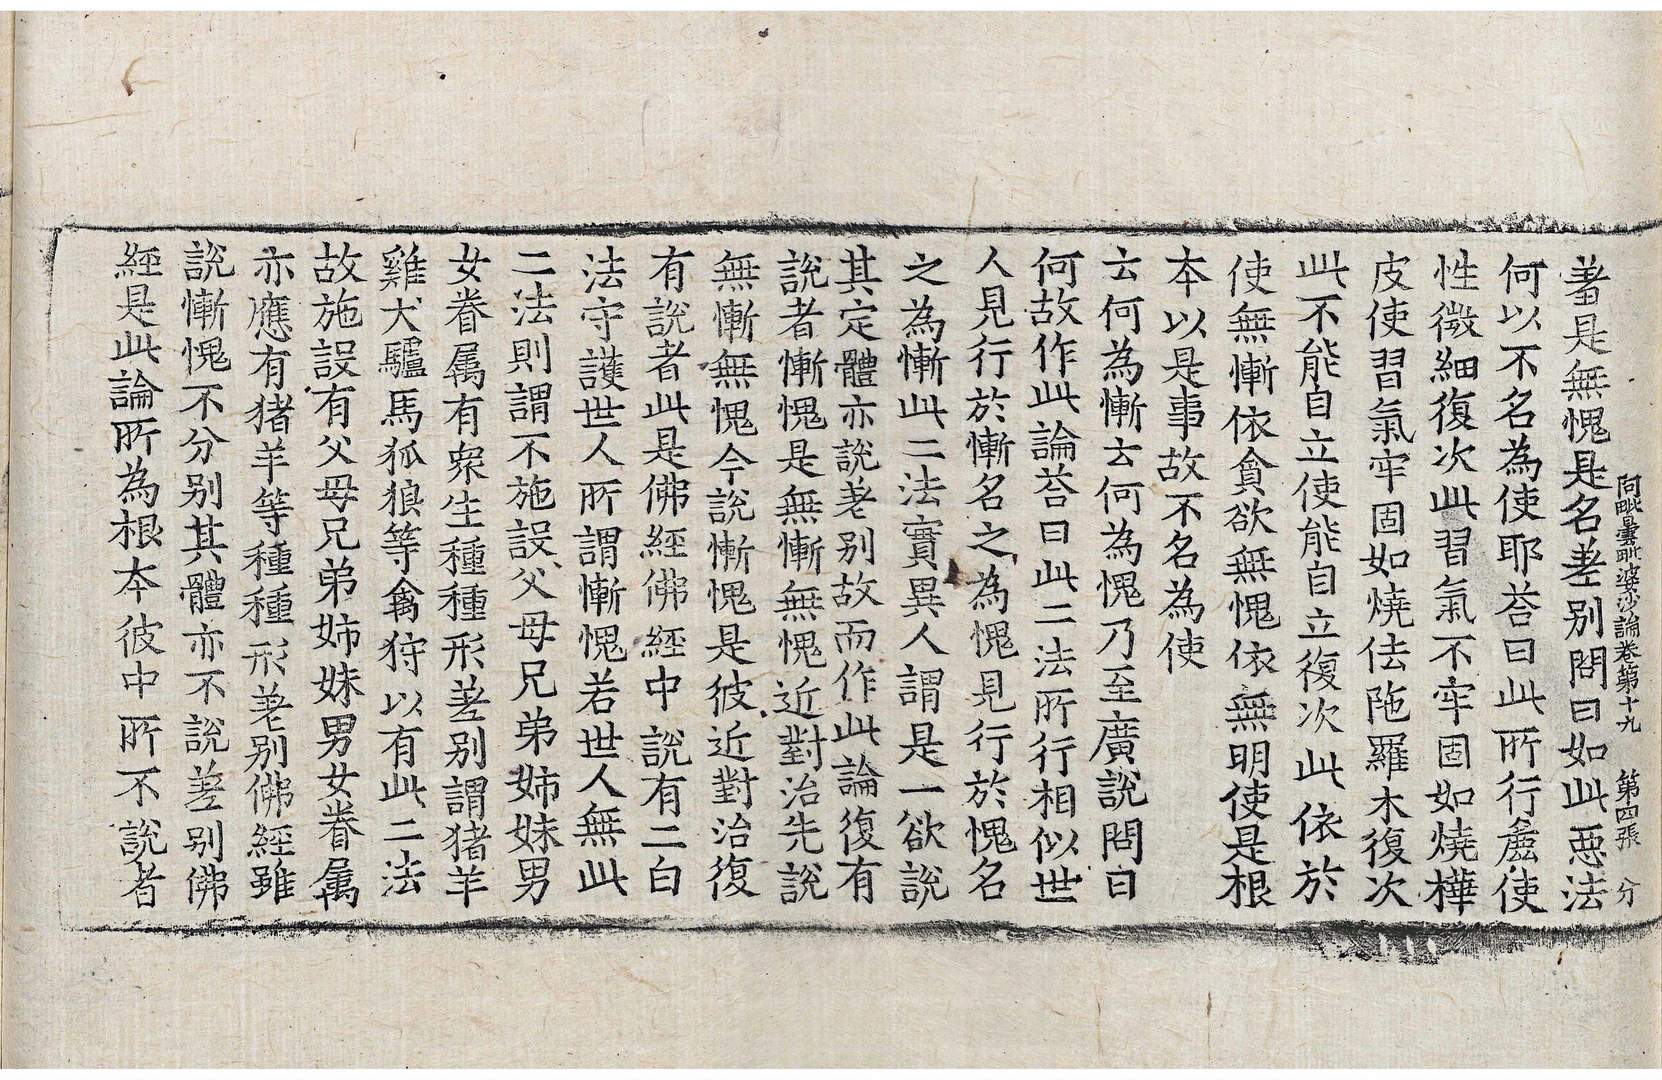 阿毗曇毗婆沙論卷第十九　第四張　分
著是無愧是名差別問曰如此惡法
何以不名為使耶荅曰此所行麁使
性微細復次此習氣不牢固如燒樺
皮使習氣牢固如燒佉陁羅木復次
此不能自立使能自立復次此依於
使無慚依貪欲無愧依無明使是根
本以是事故不名為使
云何為慚云何為愧乃至廣說問曰
何故作此論荅曰此二法所行相似世
人見行於慚名之為愧見行於愧名
之為慚此二法實異人謂是一欲說
其定體亦說差別故而作此論復有
說者慚愧是無慚無愧近對治先說
無慚無愧今說慚愧是彼近對治復
有說者此是佛經佛經中說有二白
法守護世人所謂慚愧若世人無此
二法則謂不施設父母兄弟姉妹男
女眷属有衆生種種形差別謂猪羊
雞犬驢馬狐狼等禽狩以有此二法
故施設有父母兄弟姉妹男女眷属
亦應有猪羊等種種形差別佛經雖
說慚愧不分別其體亦不說差別佛
經是此論所為根本彼中所不說者